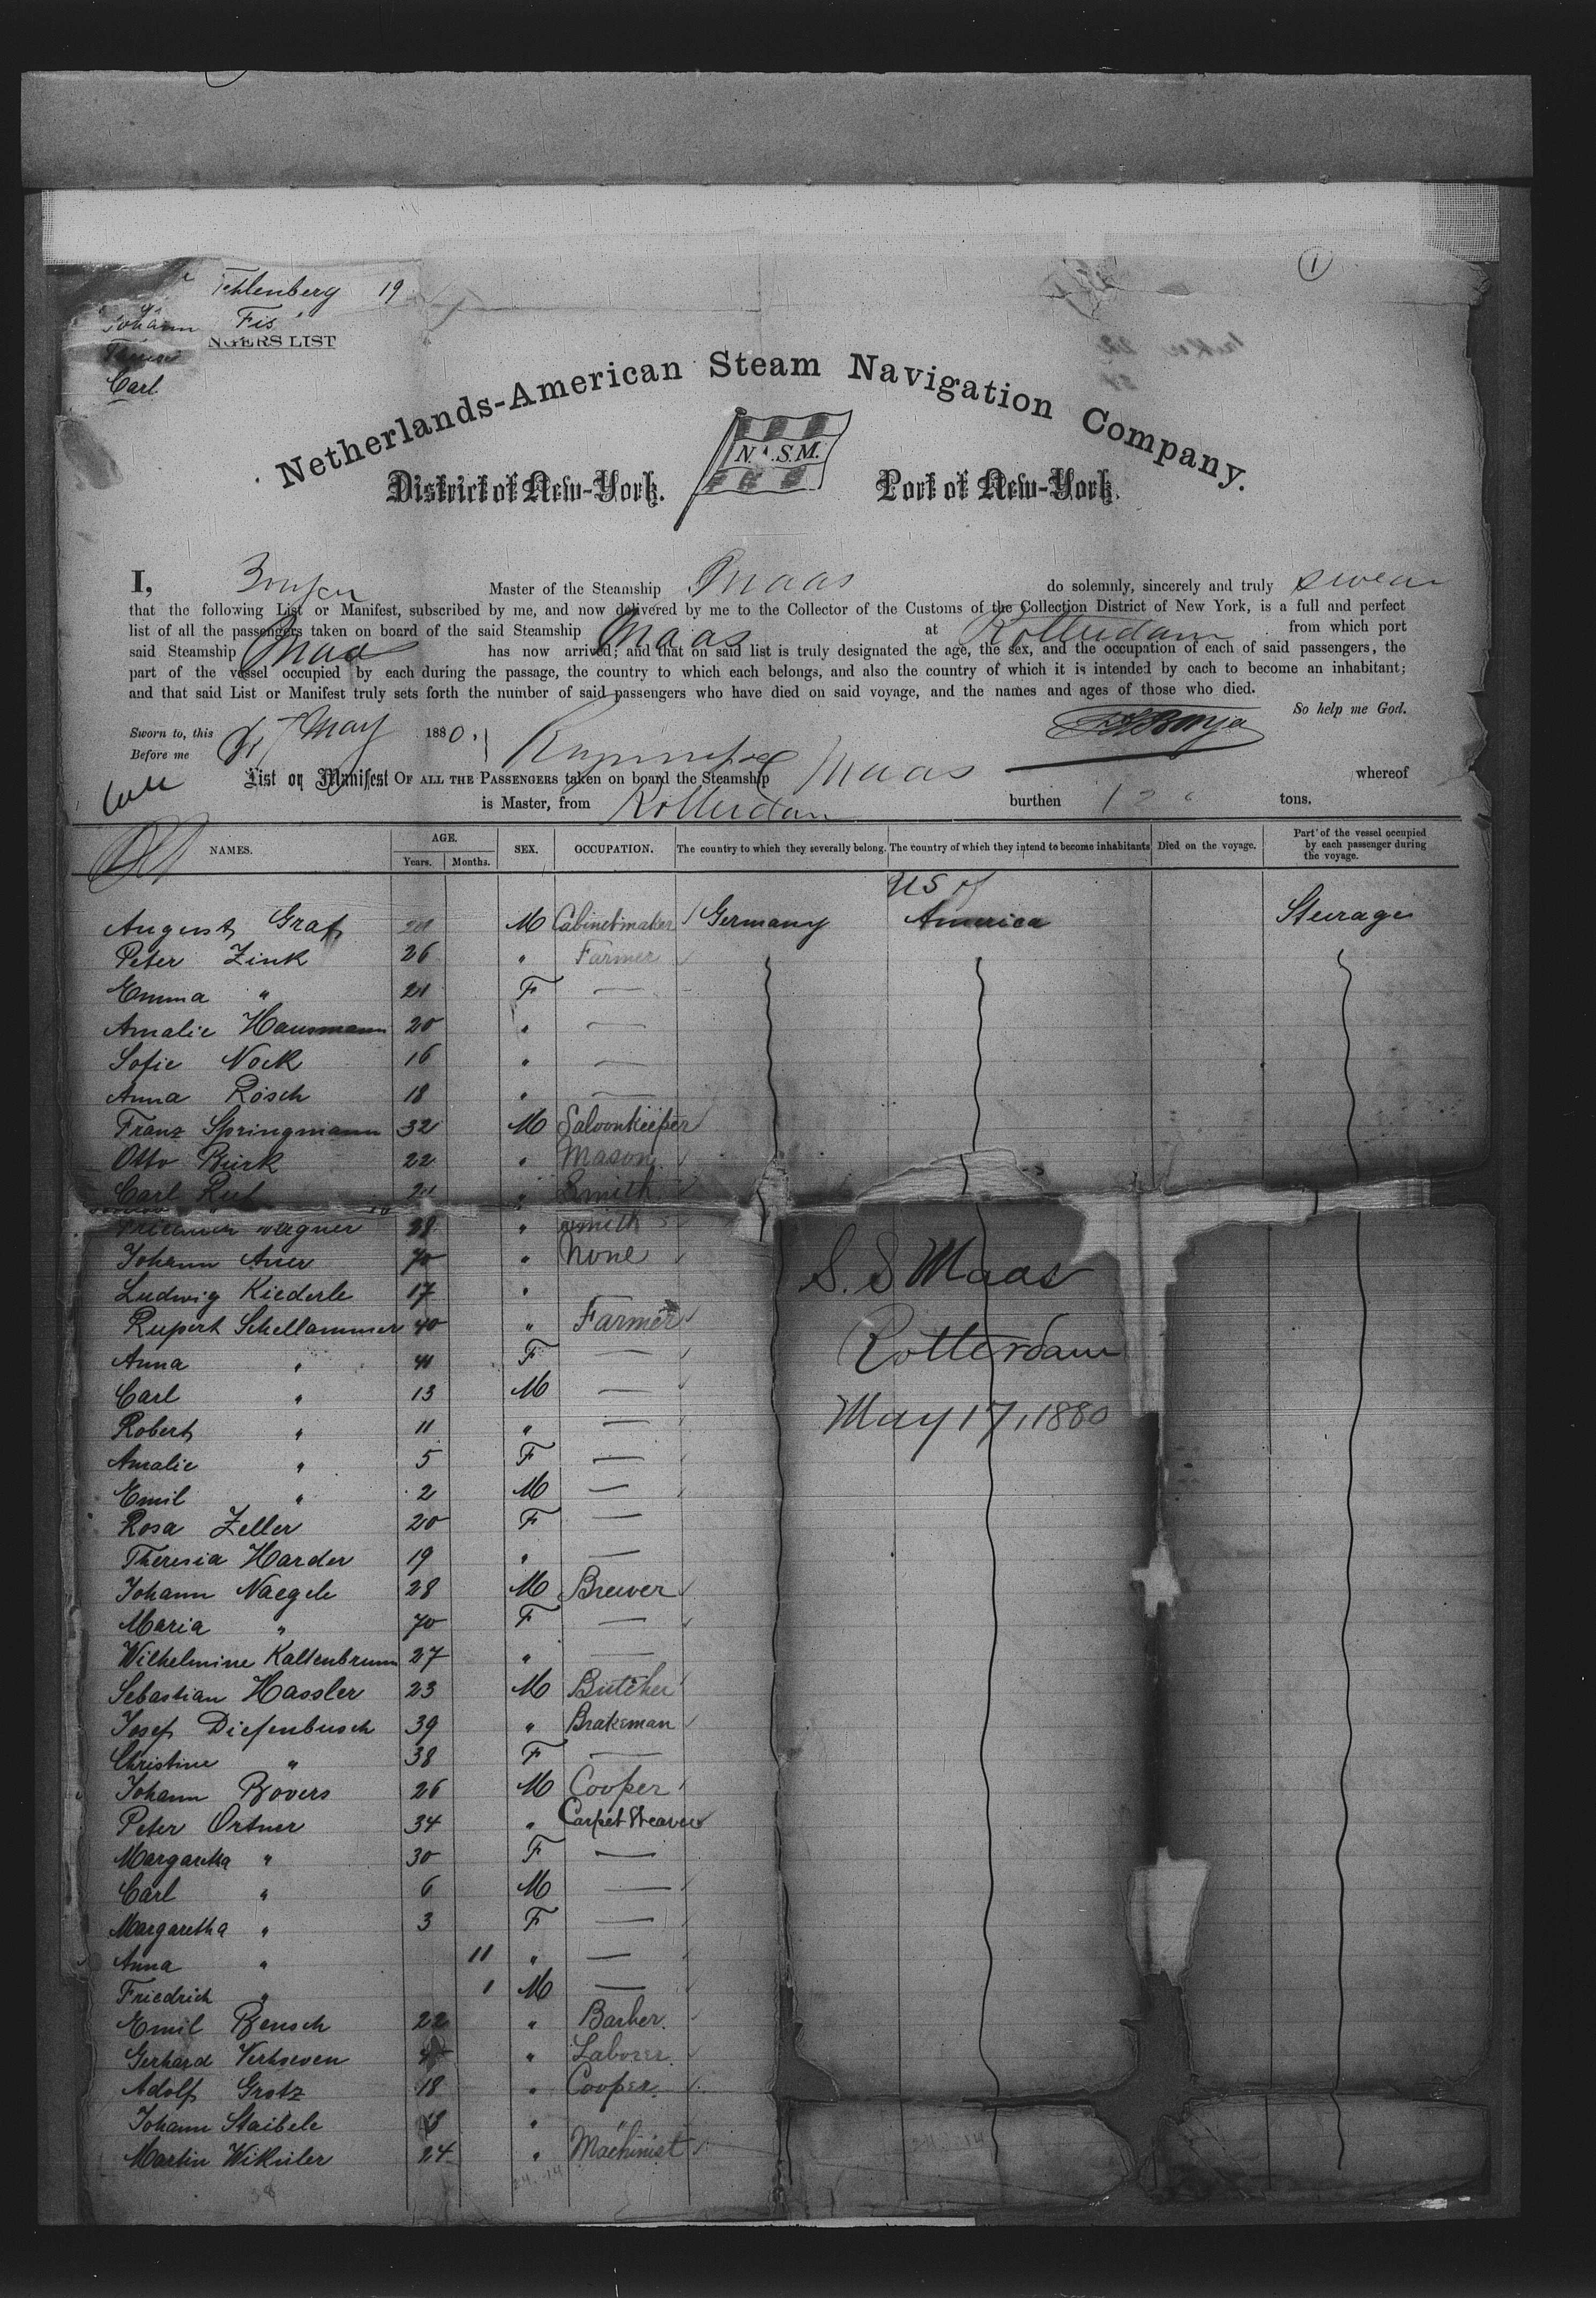 Tehlenberg 19
Johann Fis
NGERS LIST
Carl
1
Netherlands-American Steam Navigation Company.
N.A.S.M.
District of New-York. Port of New-York.
I, Master of the Steamship Maas do solemnly, sincerely and truly swear
that the following List or Manifest, subscribed by me, and now delivered by me to the Collector of the Customs of the Collection District of New York, is a full and perfect
list of all the passengers taken on board of the said Steamship Maas at Rotterdam from which port
said Steamship Maas has now arrived; and that on said list is truly designated the age, the sex, and the occupation of each of said passengers, the
part of the vessel occupied by each during the passage, the country to which each belongs, and also the country of which it is intended by each to become an inhabitant;
and that said List or Manifest truly sets forth the number of said passengers who have died on said voyage, and the names and ages of those who died.
So help me God.
Sworn to, this 17 May 1880.
Before me
List or Manifest OF ALL THE PASSENGERS taken on board the Steamship Maas whereof
is Master, from Rotterdam burthen tons.
NAMES. AGE. Years. Months. SEX. OCCUPATION. The country to which they severally belong. The country of which they intend to become inhabitants Died on the voyage. Part of the vessel occupied by each passenger during the voyage.
US of
August Graf M Cabinetmaker Germany America Steerage
Peter Zink 26 " Farmer
Emma " 21 F —
Amalie Hausmann 20 " —
Sofie Nock 16 " —
Anna Rösch 18 " —
Franz Springmann 32 M Saloonkeeper
Otto Bürk 22 " Mason
Carl Ruf 21 " Smith
Wagner 28 " Smith
Johann Auer 70 " None
Ludwig Kiederle 17 "
Rupert Schellammer 40 " Farmer
Anna " 41 F —
Carl " 13 M —
Robert " 11 " —
Amalie " 5 F —
Emil " 2 M —
Rosa Zeller 20 F —
Theresia Harder 19 " —
Johann Naegele 28 M Brewer
Maria " 70 F —
Wilhelmine Kaltenbrunn 27 " —
Sebastian Hassler 23 M Butcher
Josef Diefenbusch 39 " Brakeman
Christine " 38 F —
Johann Bovers 26 M Cooper
Peter Ortner 34 " Carpet Weaver
Margaretha " 30 F —
Carl " 6 M —
Margaretha " 3 F —
Anna " 11 " —
Friedrich " 1 M —
Emil Bensch 22 " Barber.
Gerhard Verhoeven " Laborer.
Adolf Grotz 18 " Cooper.
Johann Staibele 18 "
Martin Wikuler 24 " Machinist
S. S Maas
Rotterdam
May 17, 1880
38
24. 14